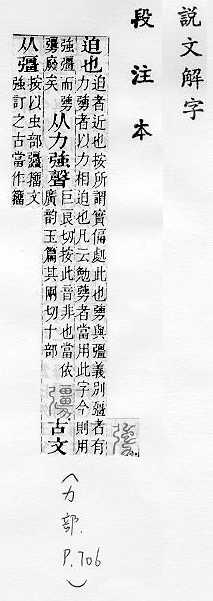 說文解字
段注本
迫也迫者近也按所謂實偪処此也勥與彊義別彊者有
力勥者以力相迫也凡云勉勥者當用此字今則用
強彊而
勥廢矣从力強聲巨良切按此音非也當依
廣韻玉篇其兩切十部
古文
从彊按以虫部𧖑籒文
強訂之古當作籒
(力部. P.706)